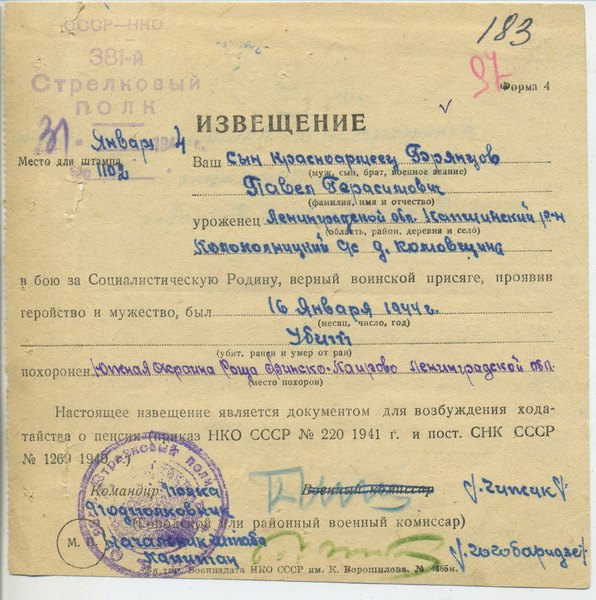 183
97
СССР—НКО
381-й
Стрелковый
ПОЛК
Форма 4
31 Январь 194 4
Место для штампа
№ 1102
ИЗВЕЩЕНИЕ
Ваш сын красноармеец Брянцов
(муж, сын, брат, военное звание)
Павел Герасимович
(фамилия, имя и отчество)
уроженец Ленинградской обл. Капшинский р-н
(область, район, деревня и село)
д.
в бою за Социалистическую Родину, верный воинской присяге, проявив
геройство и мужество, был 16 Января 1944 г.
(месяц, число, год)
Убит
(убит, ранен и умер от ран)
похоронен Южная окраина Роща Ленинградской обл
(место похорон)
Настоящее извещение является документом для возбуждения хода-
тайства о пенсии (приказ НКО СССР № 220 1941 г. и пост. СНК СССР
№ 1269 1940 г.)
Стрелковый полк
Командир полка
Военный комиссар
/Чижик/
Подполковник
(Городской или районный военный комиссар)
М.
Начальник штаба
Капитан
/Гогобаридзе/
тип. Воениздата НКО СССР им. К. Ворошилова. №